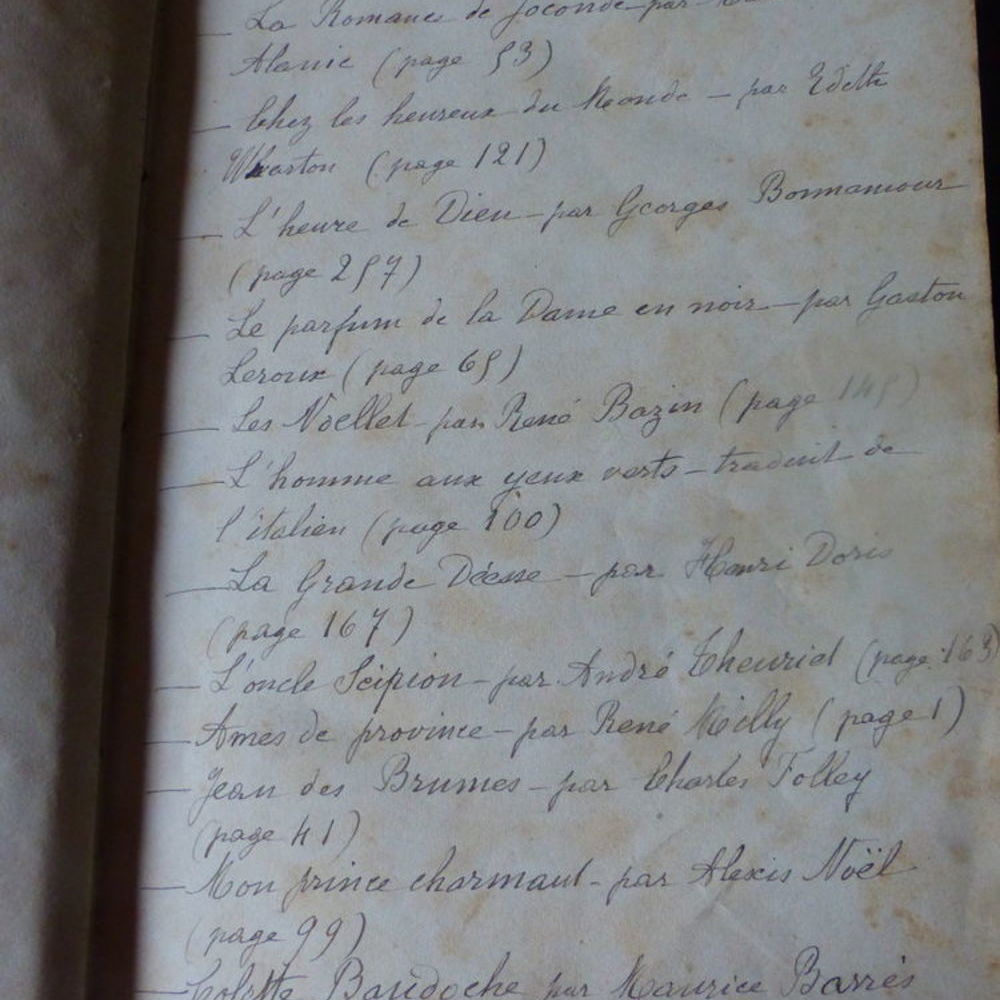 — La Romance de Joconde par
Alanic (page 53)
— Chez les heureux du Monde – par Edith
Wharton (page 121)
— L'heure de Dieu – par Georges Bonnamour
(page 257)
— Le parfum de la Dame en noir – par Gaston
Leroux (page 65)
— Les Noellet – par René Bazin (page 145)
— L'homme aux yeux verts – traduit de
l'italien (page 100)
— La Grande Déesse – par Henri Doris
(page 167)
— L'oncle Scipion – par André Theuriet (page 163)
— Ames de province – par René Milly (page 1)
— Jean des Brumes – par Charles Folley
(page 41)
— Mon prince charmant – par Alexis Noël
(page 99)
— Colette Baudoche par Maurice Barrès